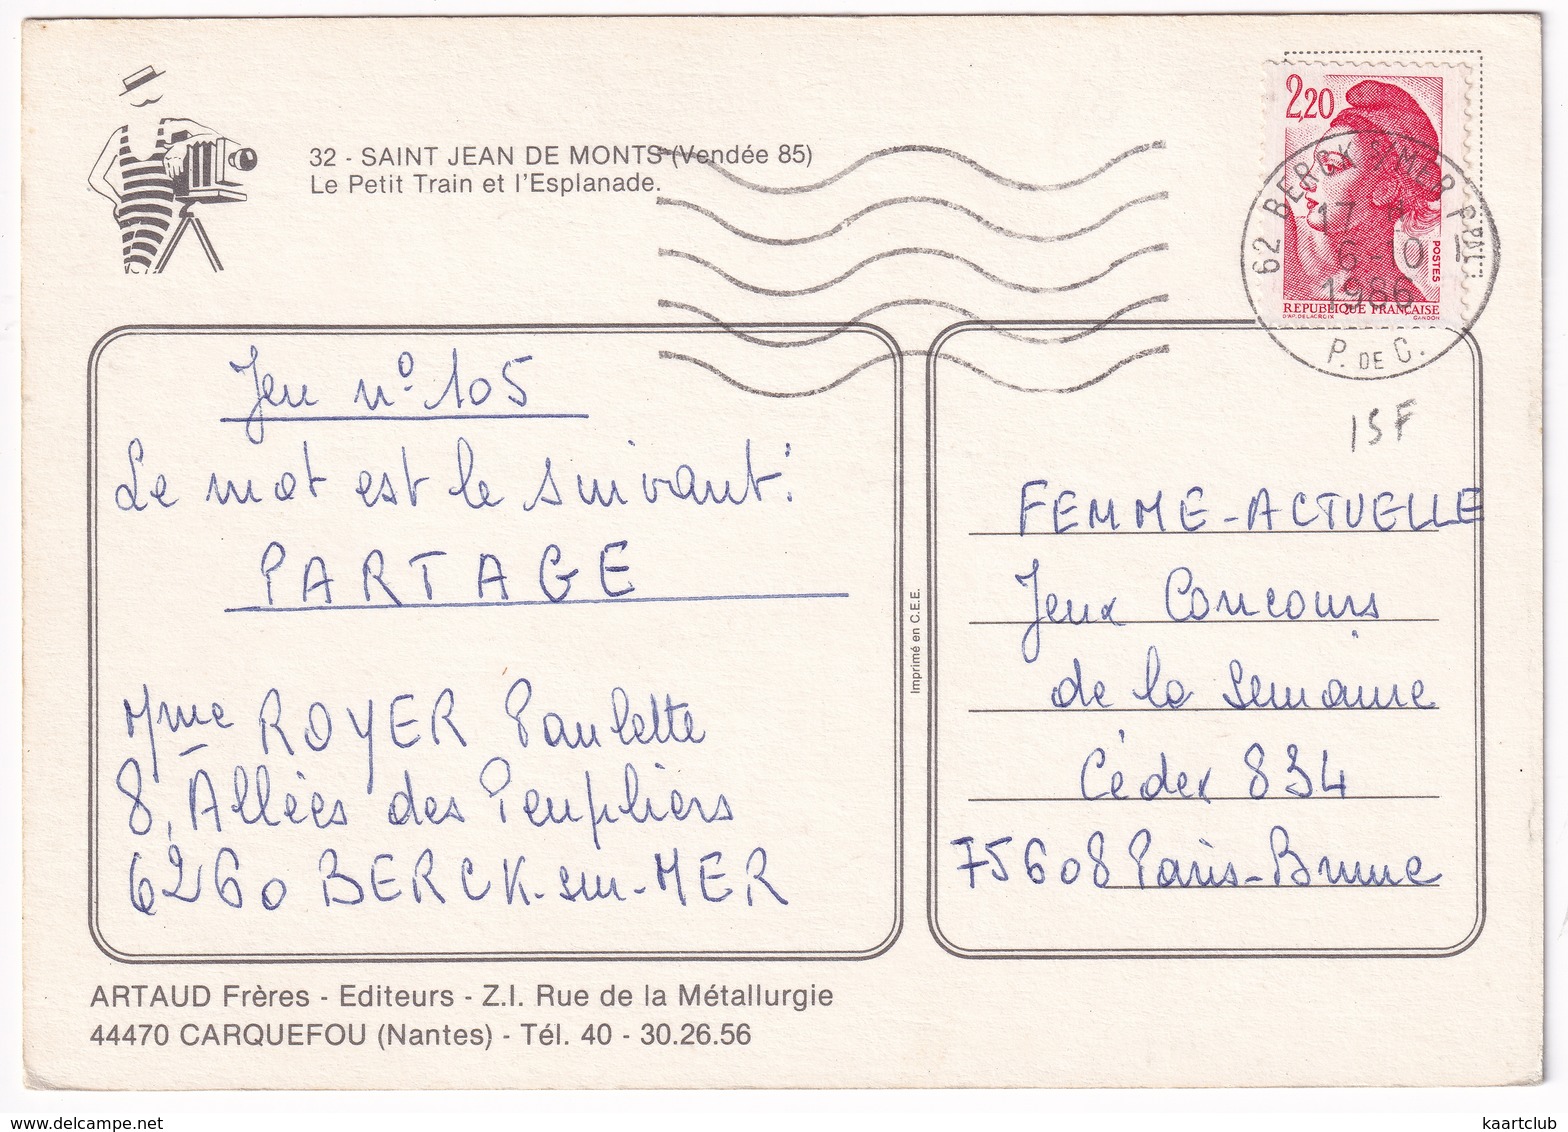 32 - SAINT JEAN DE MONTS (Vendée 85)
Le Petit Train et l'Esplanade.
2,20
POSTES
REPUBLIQUE FRANÇAISE
D'AP. DELACROIX GANDON
62 BERCK S/MER P
17 H
6-10
1986
P. DE C.
Jeu n° 105
Le mot est le suivant:
PARTAGE
Mme ROYER Paulette
8, Allées des Peupliers
62600 BERCK-sur-MER
Imprimé en C.E.E.
15F
FEMME-ACTUELLE
Jeux Concours
de la semaine
Cédex 834
75608 Paris-Brune
ARTAUD Frères - Editeurs - Z.I. Rue de la Métallurgie
44470 CARQUEFOU (Nantes) - Tél. 40 - 30.26.56
www.delcampe.net
kaartclub